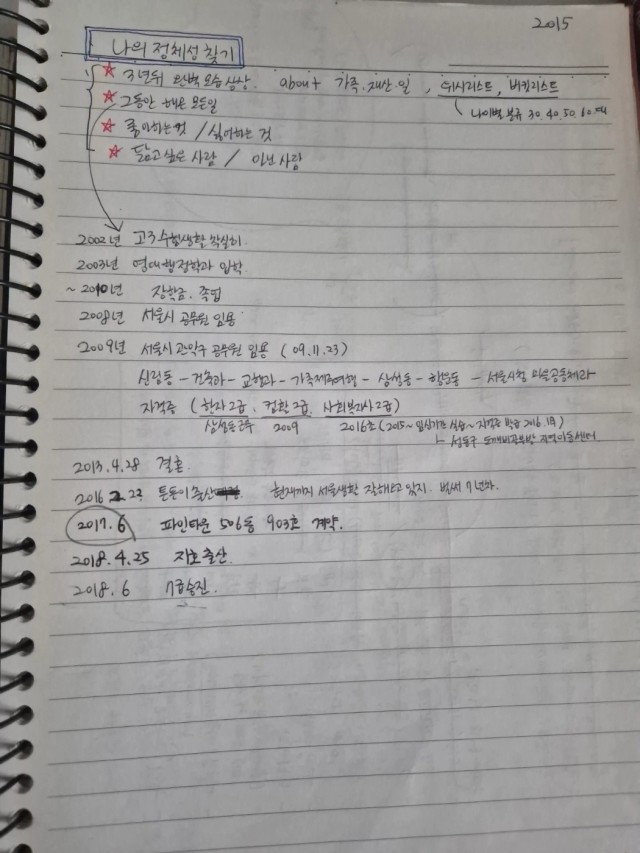 2015
나의 정체성 찾기
☆ 3년뒤 완벽 모습 상상. about 가족.재산.일, 위시리스트, 버킷리스트
나이별 분류 30.40.50.60대
☆ 그동안 해온 모든일
☆ 좋아하는 것 / 싫어하는 것
☆ 닮고 싶은 사람 / 아닌 사람
2002년 고3수험생활 착실히
2003년 영대행정학과 입학
~ 2010년 장학금. 졸업
2008년 서울시 공무원 임용
2009년 서울시 관악구 공무원 임용 (09.11.23)
신림동 - 건축과 - 교통과 - 가족제주여행 - 삼성동 - 행운동 - 서울시청 마을공동체과
자격증 (한자2급, 컴활2급, 사회복지사2급)
삼성동근무 2009 2016초 (2015~ 실습 ~ 자격증 발급 2016.1月)
지역아동센터
2013.4.28 결혼
2016 2.22 튼튼이출산 현재까지 서울생활 잘해오고 있지. 벌써 7년차.
2017.6 파인타운 506동 903호 계약.
2018.4.25 지호출산
2018.6 7급승진.